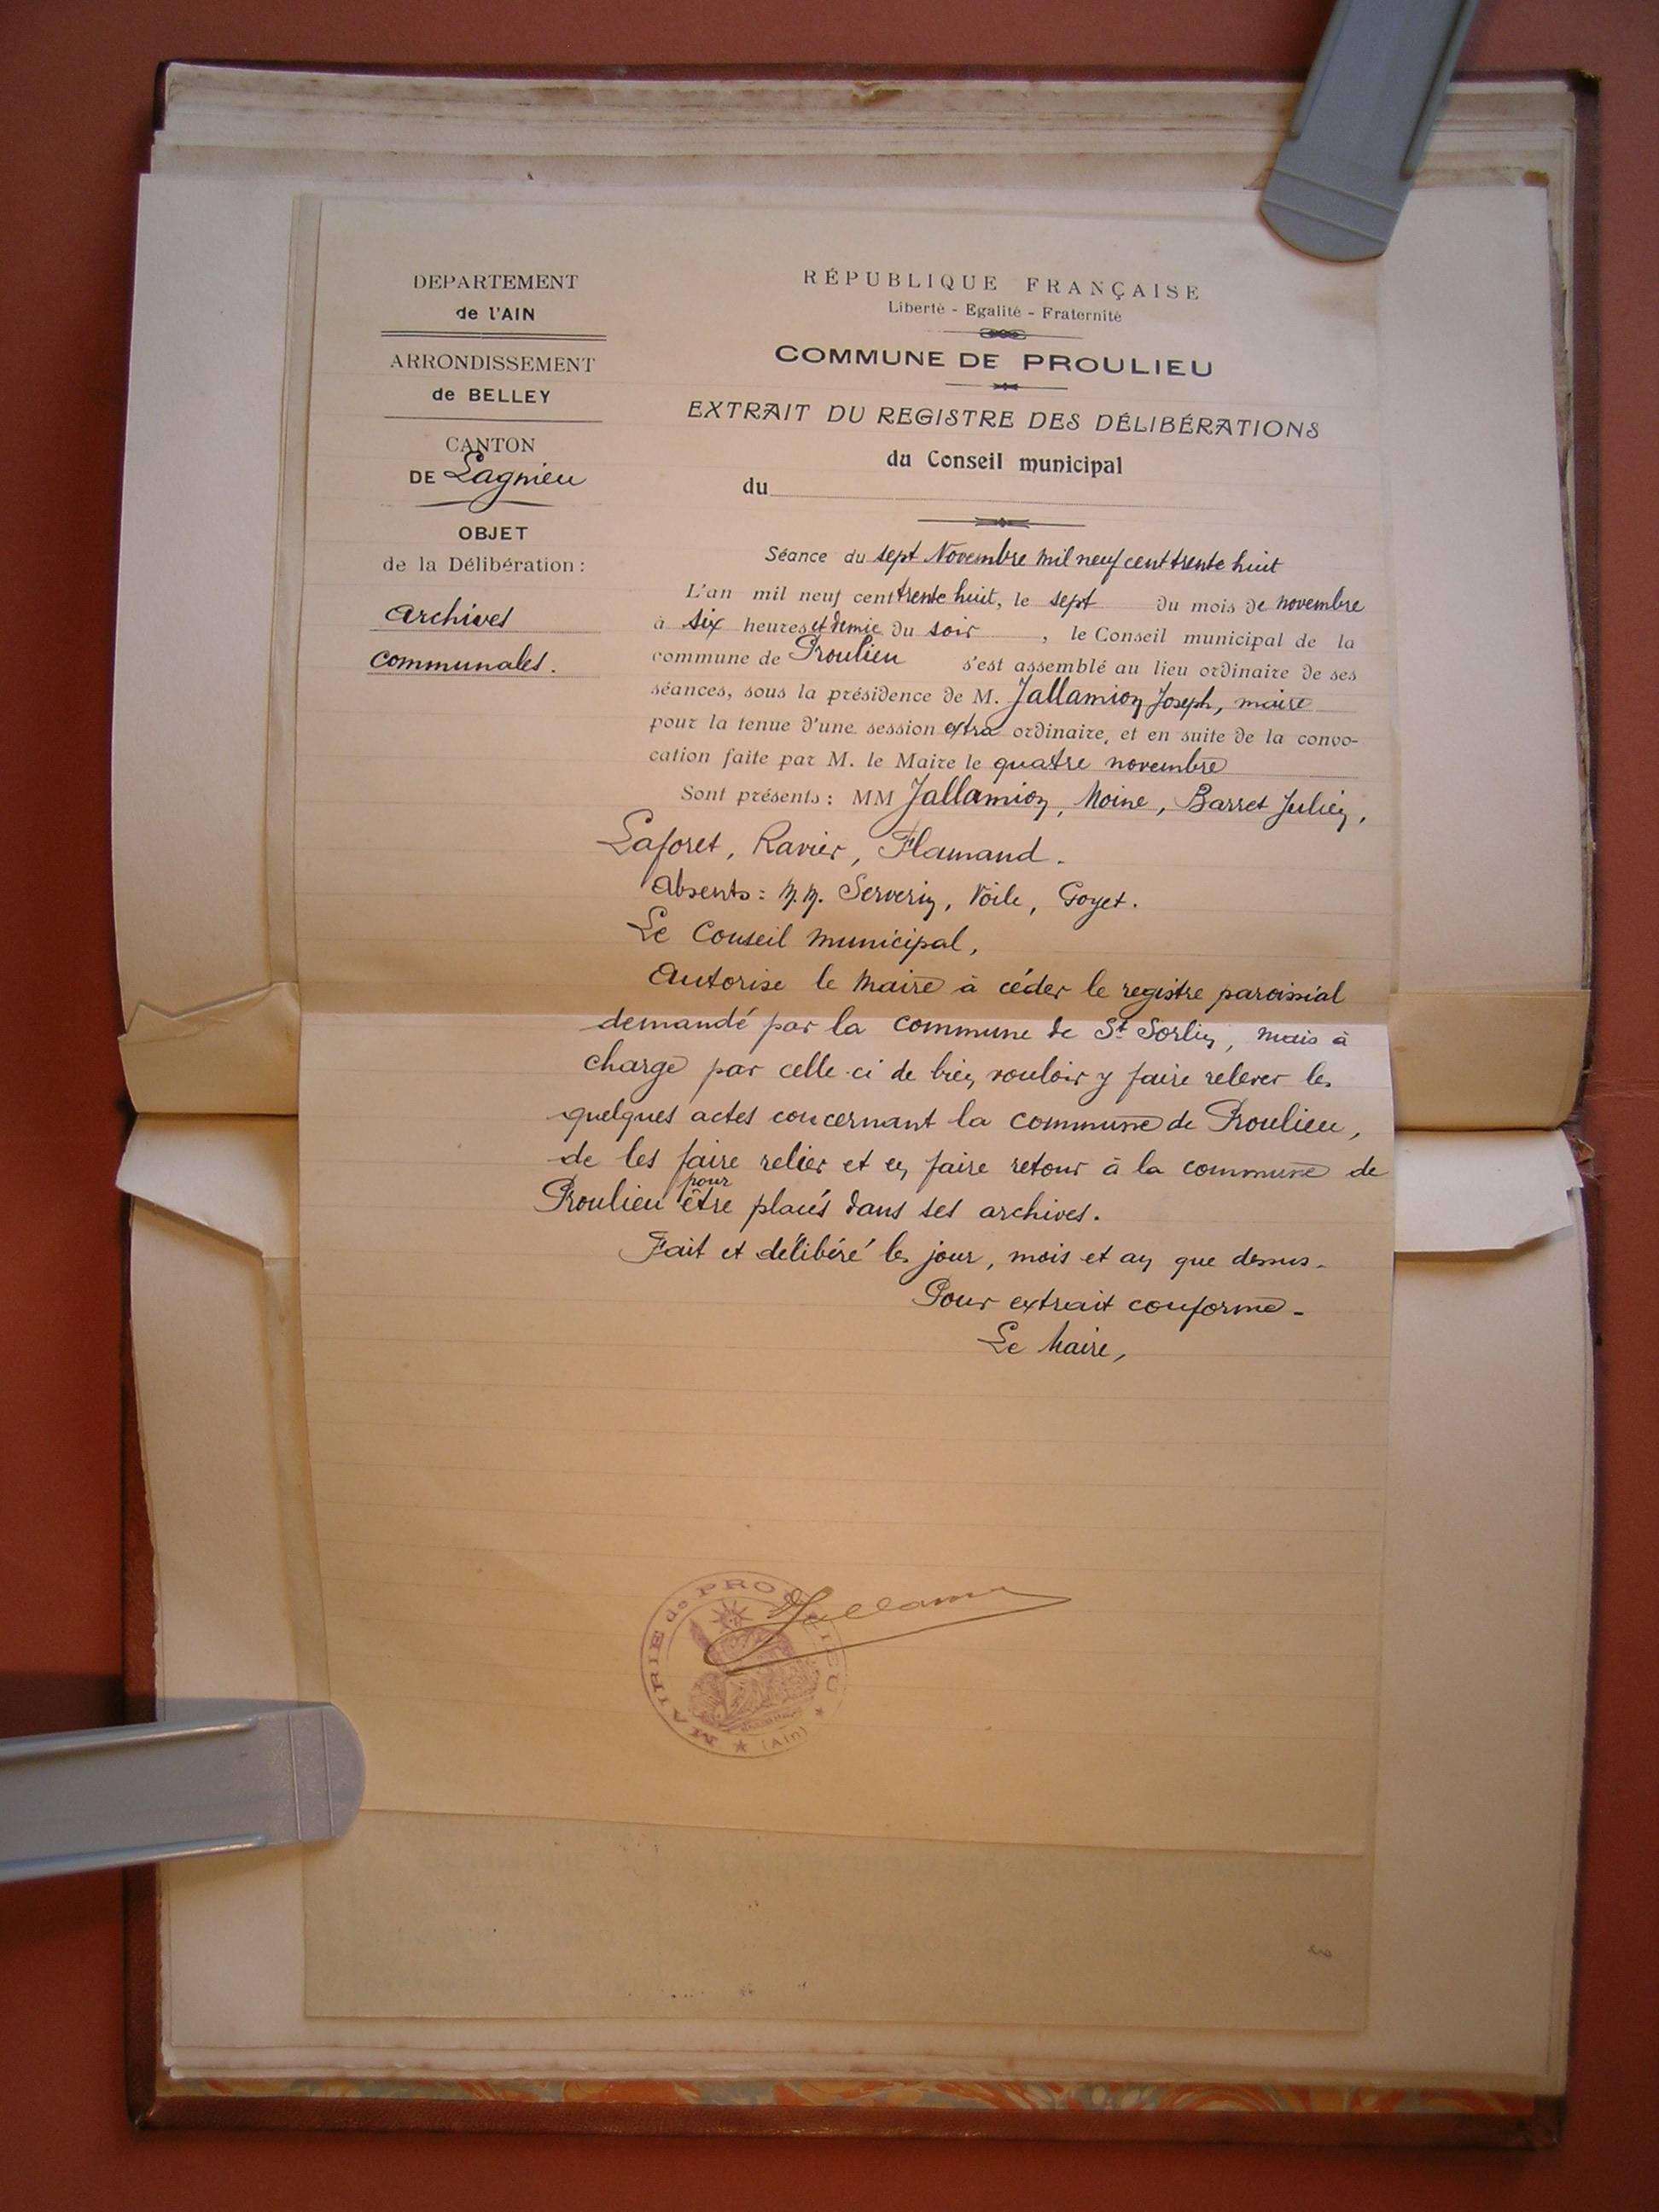 DEPARTEMENT
de l'AIN
ARRONDISSEMENT
de BELLEY
CANTON
DE Lagnieu
OBJET
de la Délibération :
Archives
communales.
RÉPUBLIQUE FRANÇAISE
Liberté - Egalité - Fraternité
COMMUNE DE PROULIEU
EXTRAIT DU REGISTRE DES DÉLIBÉRATIONS
du Conseil municipal
du
Séance du sept Novembre mil neuf cent trente huit
L'an mil neuf cent trente huit, le sept du mois de novembre
à six heures et demie du soir , le Conseil municipal de la
commune de Proulieu s'est assemblé au lieu ordinaire de ses
séances, sous la présidence de M. Jallamion Joseph, maire
pour la tenue d'une session extra ordinaire, et en suite de la convo-
cation faite par M. le Maire le quatre novembre
Sont présents : MM Jallamion, Moine, Barret Julien,
Laforet, Ravier, Flamand.
Absents : M.M. Serverin, Voile, Goyet.
Le Conseil municipal,
Autorise le Maire à céder le registre paroissial
demandé par la commune de St Sorlin, mais à
charge par celle-ci de bien vouloir y faire relever les
quelques actes concernant la commune de Proulieu,
de les faire relier et en faire retour à la commune de
Proulieu pour être placés dans ses archives.
Fait et délibéré les jour, mois et an que dessus.
Pour extrait conforme -
Le Maire,
Jallamion
MAIRIE de PROULIEU
(Ain)